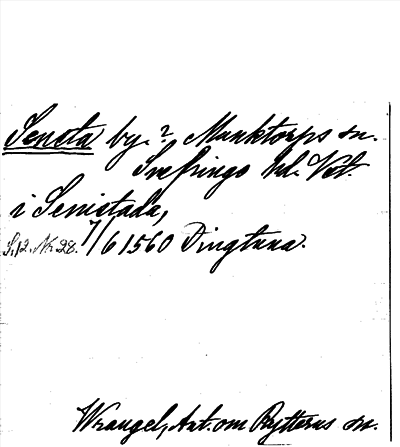 Sencta by.? Munktorps sn.
Snefringe hd. Vstl.
i Senistada,
S.12. Nr. 28. 7/6 1560 Dingtuna.
Wrangel, Ant. om Rytterns sn.